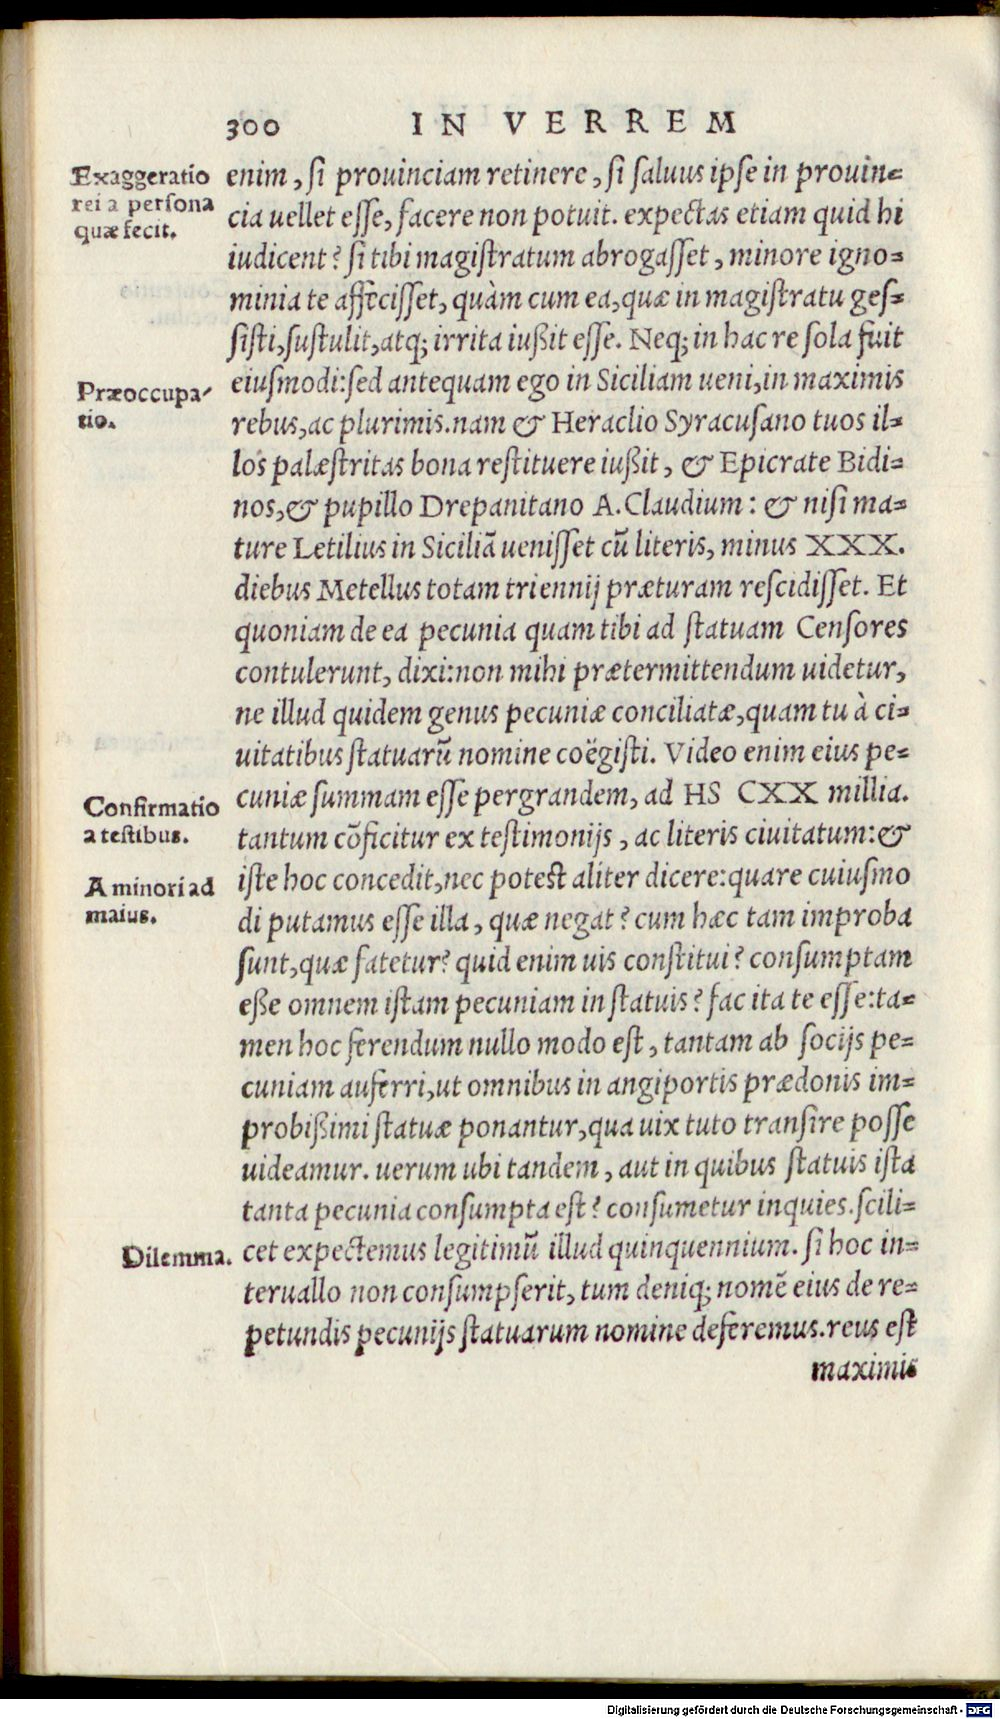 300 IN VERREM
Exaggeratio
rei a persona
quæ fecit.
enim, si prouinciam retinere, si saluus ipse in prouin-
cia uellet esse, facere non potuit. expectas etiam quid hi
iudicent? si tibi magistratum abrogasset, minore igno-
minia te affecisset, quàm cum ea, quæ in magistratu ges-
sisti, sustulit, atq; irrita iußit esse. Neq; in hac re sola fuit
Præoccupa-
tio.
eiusmodi: sed antequam ego in Siciliam ueni, in maximis
rebus, ac plurimis. nam & Heraclio Syracusano tuos il-
los palæstritas bona restituere iußit, & Epicrate Bidi-
nos, & pupillo Drepanitano A. Claudium: & nisi ma-
ture Letilius in Siciliā uenisset cū literis, minus XXX.
diebus Metellus totam triennij præturam rescidisset. Et
quoniam de ea pecunia quam tibi ad statuam Censores
contulerunt, dixi: non mihi prætermittendum uidetur,
ne illud quidem genus pecuniæ conciliatæ, quam tu à ci-
uitatibus statuarū nomine coëgisti. Video enim eius pe-
Confirmatio
a testibus.
cuniæ summam esse pergrandem, ad HS CXX millia.
tantum cōficitur ex testimonijs, ac literis ciuitatum: &
A minori ad
maius.
iste hoc concedit, nec potest aliter dicere: quare cuiusmo
di putamus esse illa, quæ negat? cum hæc tam improba
sunt, quæ fatetur? quid enim uis constitui? consumptam
eße omnem istam pecuniam in statuis? fac ita te esse: ta-
men hoc ferendum nullo modo est, tantam ab socijs pe-
cuniam auferri, ut omnibus in angiportis prædonis im-
probißimi statuæ ponantur, qua uix tuto transire posse
uideamur. uerum ubi tandem, aut in quibus statuis ista
tanta pecunia consumpta est? consumetur inquies. scili-
Dilemma.
cet expectemus legitimū illud quinquennium. si hoc in-
teruallo non consumpserit, tum deniq; nomē eius de re-
petundis pecunijs statuarum nomine deferemus. reus est
maximis
Digitalisierung gefördert durch die Deutsche Forschungsgemeinschaft - DFG